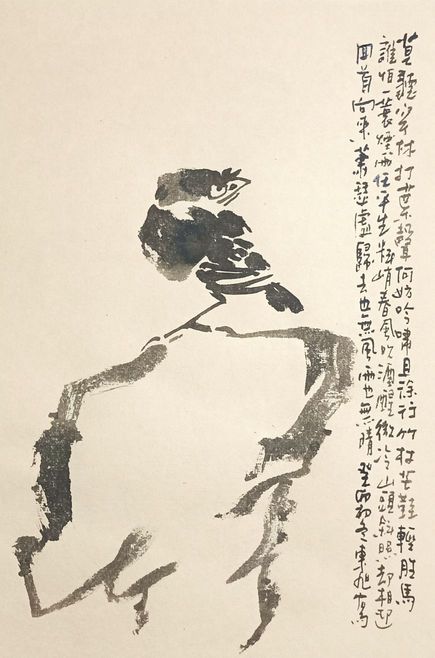 莫聽穿林打葉聲何妨吟嘯且徐行竹杖芒鞋輕胜馬
誰怕一蓑煙雨任平生料峭春風吹酒醒微冷山頭斜照却相迎
回首向來蕭瑟處歸去也無風雨也無晴 癸卯初冬東旭寫